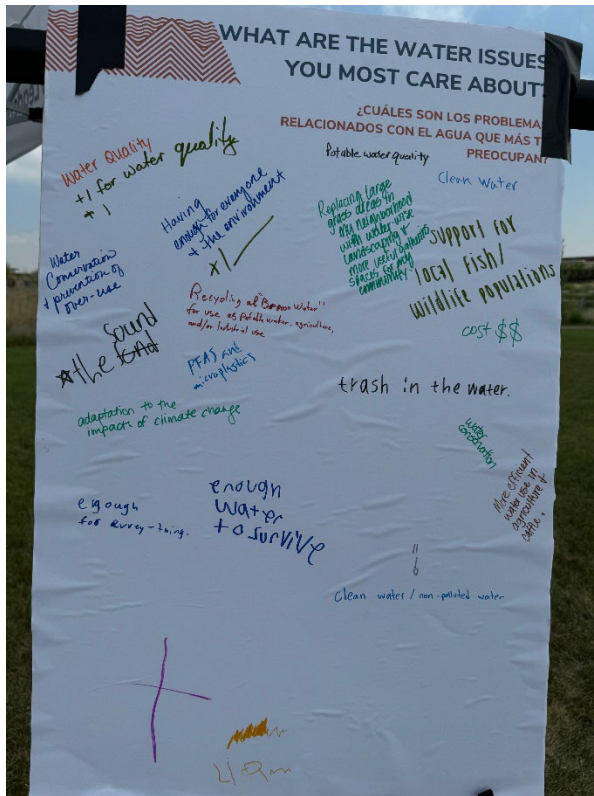 WHAT ARE THE WATER ISSUES
YOU MOST CARE ABOUT?
¿CUÁLES SON LOS PROBLEMA
RELACIONADOS CON EL AGUA QUE MÁS T
PREOCUPAN?
Water Quality
+1 for water quality
+1
Potable water quality
Clean Water
Having
enough for everyone
+ the environment
+1
Replacing large
grass areas in
my neighborhood
with water-wise
landscaping &
more useful
spaces for my
community
Support for
local fish/
wildlife populations
Water
Conservation
+ prevention of
over-use
Recycling of
for use as potable water, agriculture,
and/or industrial use
cost $$
the sound
PFAS and
microplastics
trash in the water.
adaptation to the
impacts of climate change
water
conservation
More efficient
water use in
agriculture &
cattle.
enough
for every-thing.
enough
water
to survive
clean water / non-polluted water